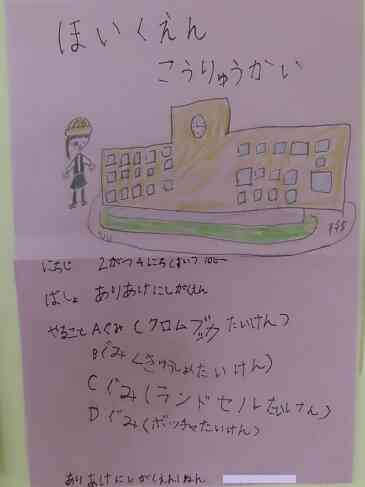 ほいくえん
こうりゅうかい
にちじ 2がつ4にち
ばしょ ありあけにしがくえん
やること Aぐみ(クロムブックたいけん)
Bぐみ(きゅうしょくたいけん)
Cぐみ(ランドセルたいけん)
Dぐみ(ボッチャたいけん)
ありあけにしがくえん1ねん